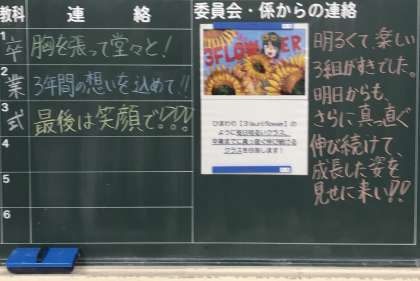 教科 連絡
1 卒 胸を張って堂々と!
2 業 3年間の想いを込めて!!
3 式 最後は笑顔で!!!
4
5
6
委員会・係からの連絡
3FLOWER
ひまわり【3(sun)flower】の
ように毎日明るいクラス、
卒業までに真っ直ぐ伸び続ける
クラスを目指します!
明るくて、楽しい
3組がすきでした。
明日からも、
さらに真っ直ぐ
伸び続けて、
成長した姿を
見せに来い!!